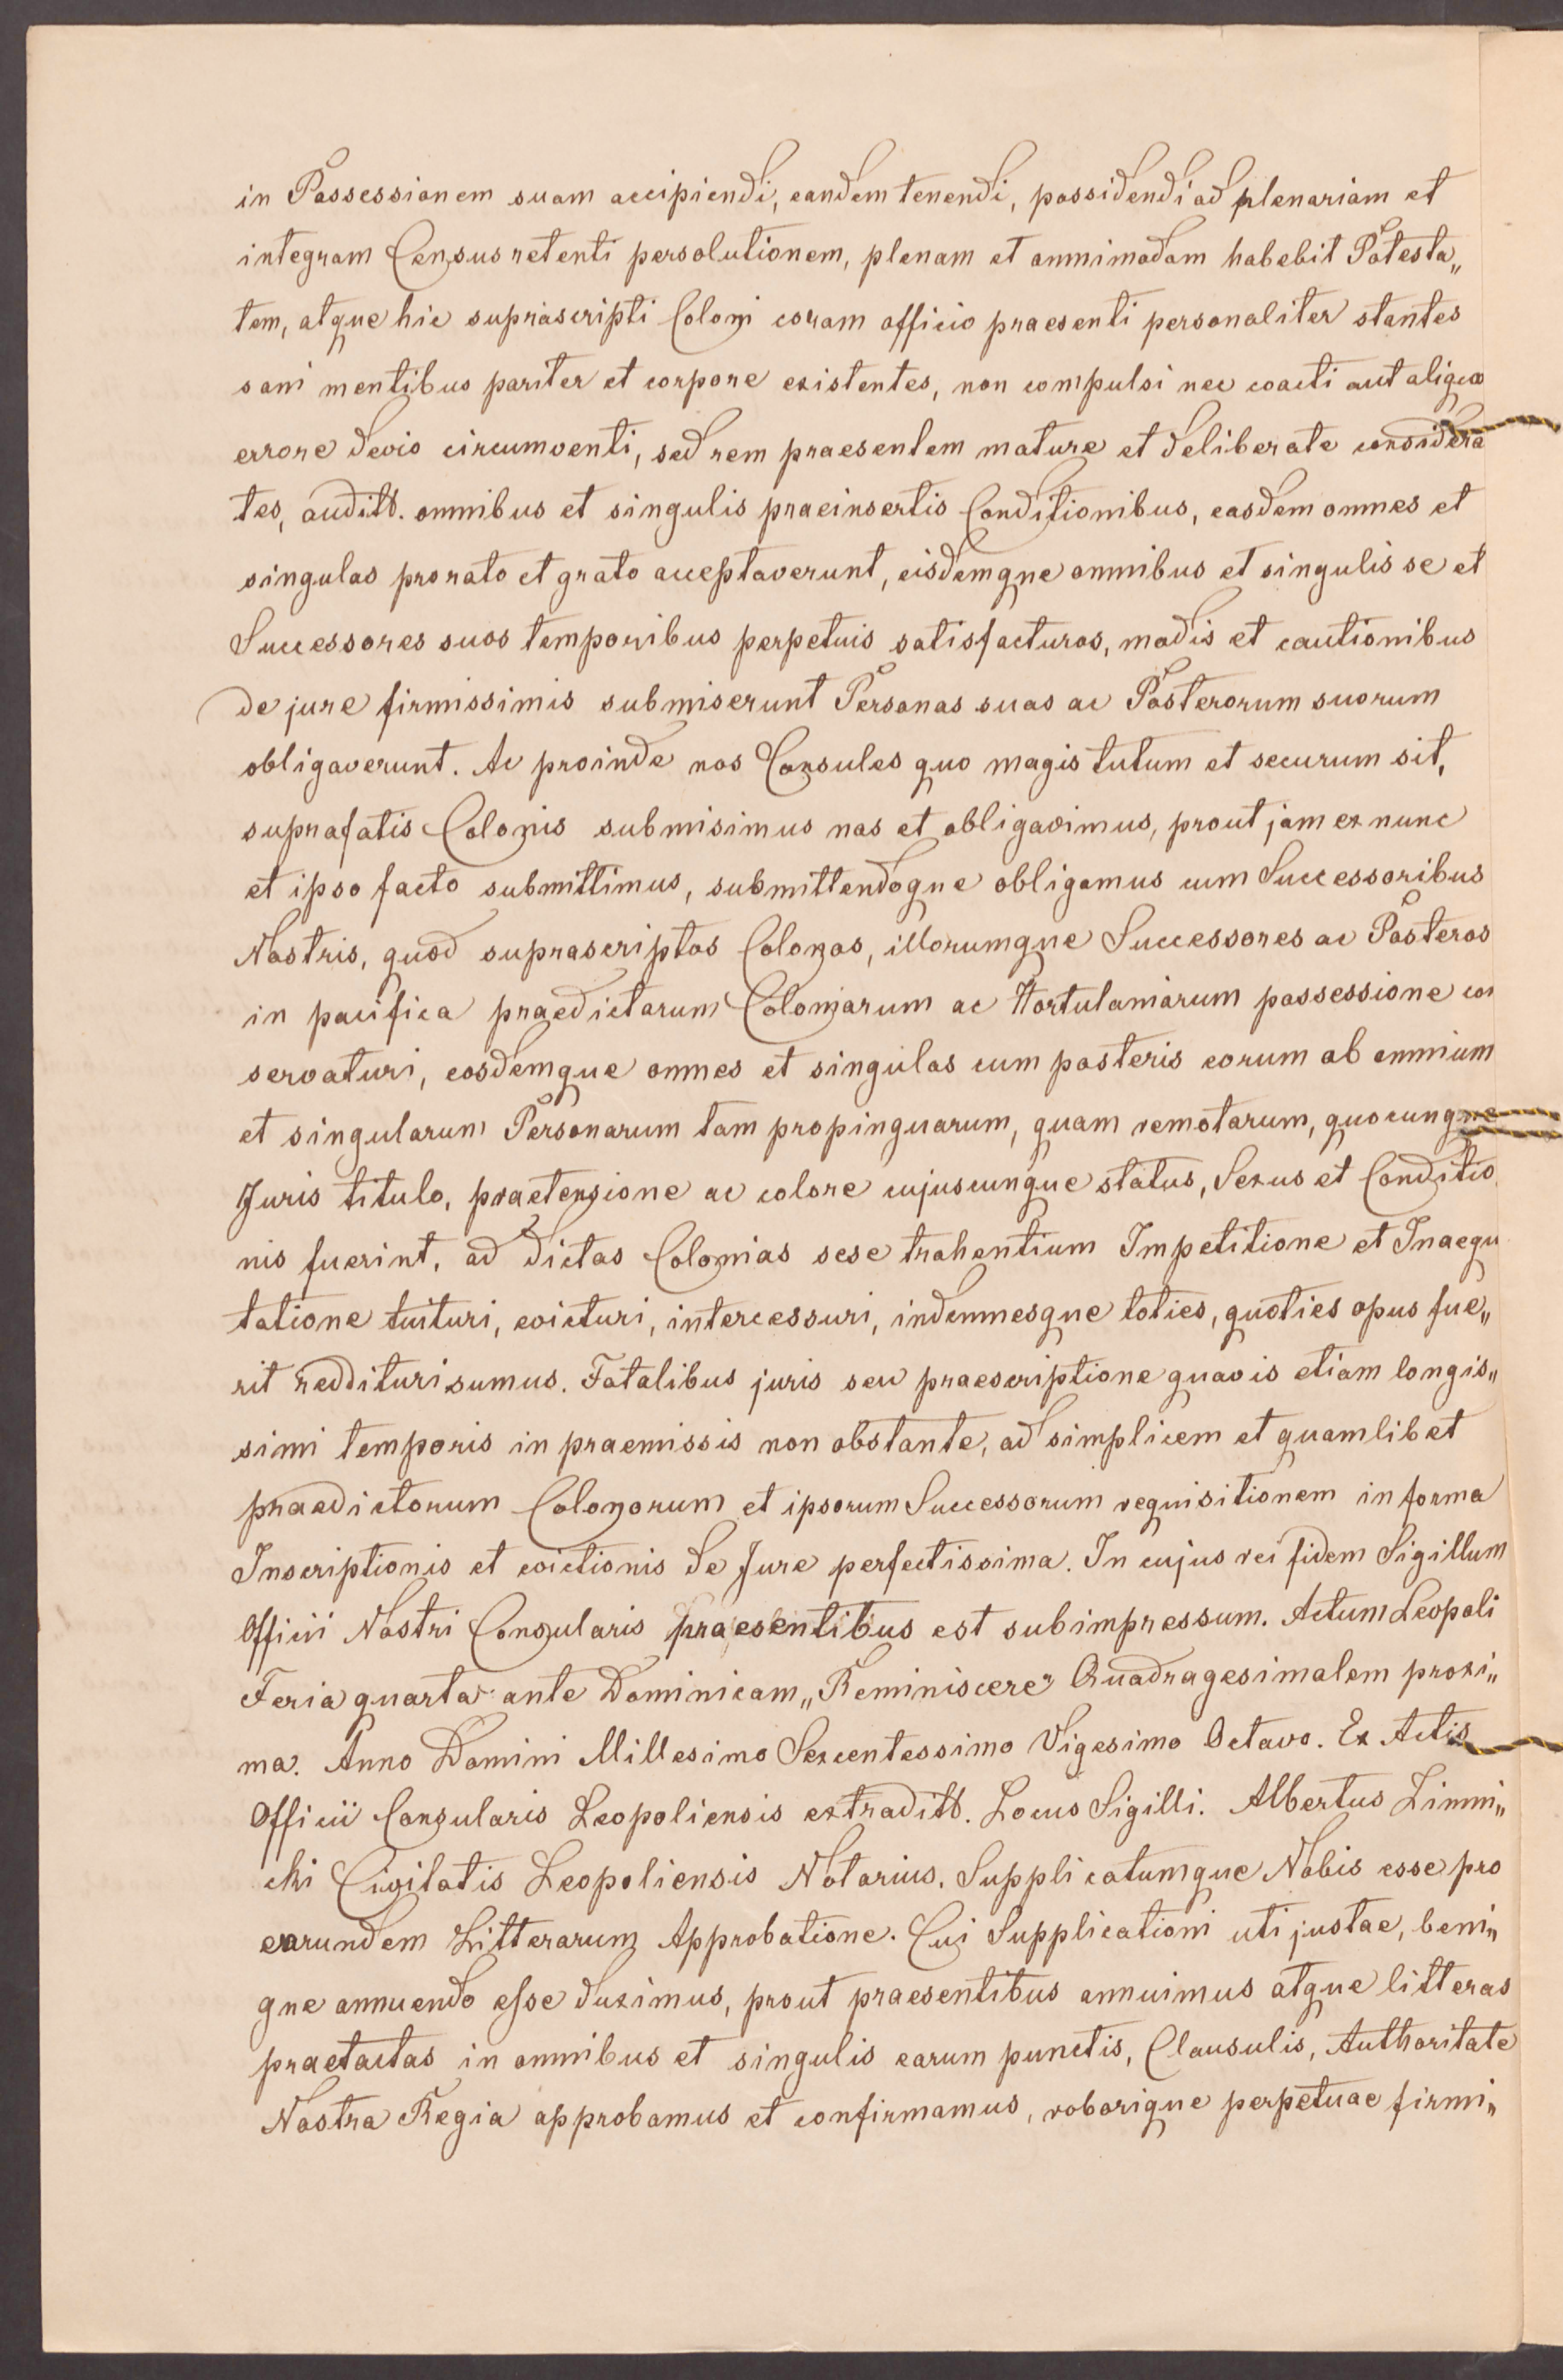 in Possessionem suam accipiendi, eandem tenendi, possidendi ad plenariam et
integram Census retenti persolutionem, plenam et omnimodam habebit Potesta„
tem, atque hic suprascripti Coloni coram officio praesenti personaliter stantes
sani mentibus pariter et corpore existentes, non compulsi nec coacti aut aliquo
errore devio circumventi, sed rem praesentem mature et deliberate considera
tes, auditt. omnibus et singulis praeinsertis Conditionibus, easdem omnes et
singulas pro rato et grato acceptaverunt, eisdemque omnibus et singulis se et
Successores suos temporibus perpetuis satisfacturos, modis et cautionibus
de jure firmissimis submiserunt Personas suas ac Posterorum suorum
obligaverunt. Ac proinde nos Consules quo magis tutum et securum sit,
suprafatis Colonis submisimus nos et obligavimus, prout jam ex nunc
et ipso facto submittimus, submittendoque obligamus cum Successoribus
Nostris, quod suprascriptos Colonos, illorumque Successores ac Posteros
in pacifica praedictarum Coloniarum ac Hortulaniarum possessione con
servaturi, eosdemque omnes et singulos cum posteris eorum ab omnium
et singularum Personarum tam propinquarum, quam remotarum, quocunque
Juris titulo, praetensione ac colore cujuscunque status, Sexus et Conditio
nis fuerint, ad dictas Colonias sese trahentium Impetitione et Inaequ
tatione tuituri, evicturi, intercessuri, indemnesque toties, quoties opus fue„
rit reddituri sumus. Fatalibus juris seu praescriptione quavis etiam longis„
simi temporis in praemissis non obstante, ad simplicem et quamlibet
praedictorum Colonorum et ipsorum Successorum requisitionem in forma
Inscriptionis et evictionis de Jure perfectissima. In cujus rei fidem Sigillum
Officii Nostri Consularis praesentibus est subimpressum. Actum Leopoli
Feria quarta ante Dominicam „Reminiscere" Quadragesimalem proxi„
ma. Anno Domini Millesimo Sexcentessimo Vigesimo Octavo. Ex Actis
Officii Consularis Leopoliensis extraditt. Locus Sigilli. Albertus Zimni„
cki Civitatis Leopoliensis Notarius. Supplicatumque Nobis esse pro
earundem Litterarum Approbatione. Cui Supplicationi uti justae, beni„
gne annuendo esse duximus, prout praesentibus annuimus atque litteras
praetactas in omnibus et singulis earum punctis, Clausulis, Authoritate
Nostra Regia approbamus et confirmamus, roborique perpetuae firmi„